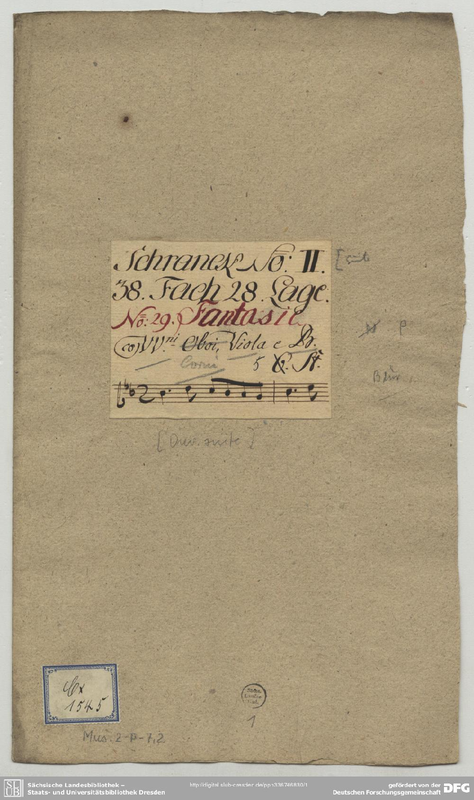 Schranck No: II.
38. Fach 28. Lage.
No: 29. Fantasie
co VVni Oboi, Viola e B.
Corni 5 St.
B dur.
[Ouv. suite]
Cx
1545
Mus. 2-P-7,2
1
Sächsische Landesbibliothek –
Staats- und Universitätsbibliothek Dresden
gefördert von der
Deutschen Forschungsgemeinschaft
DFG